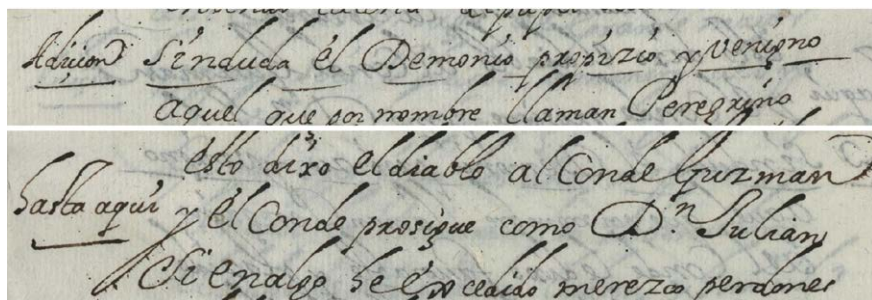 Adicion Sinduda el Demonio propizio y venigno
aquel que por nombre llaman Peregrino
esto dixo el diablo al Conde Guzman
hasta aqui y el Conde prosigue como D.n Julian
Si en algo he excedido merezco perdones